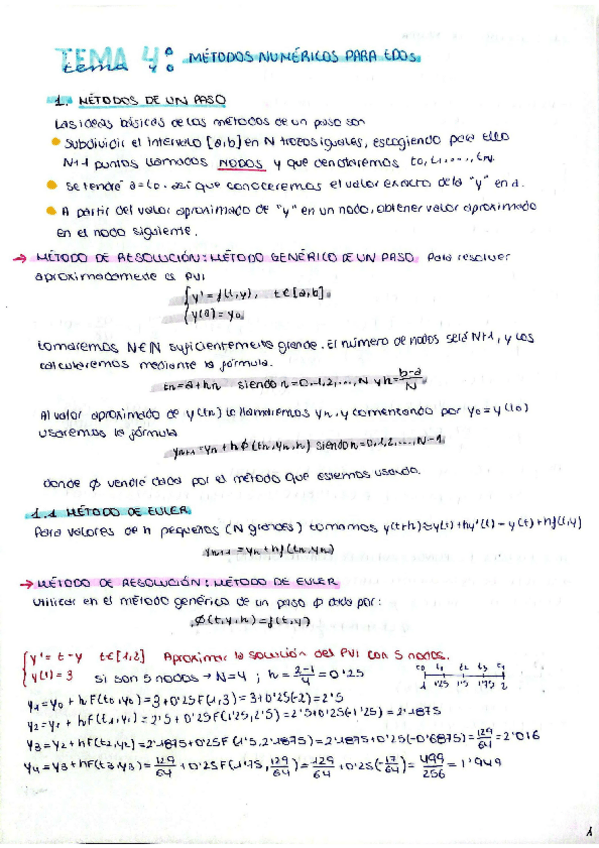 TEMA 4: MÉTODOS NUMÉRICOS PARA EDOS.
tema 4:
1. MÉTODOS DE UN PASO
Las ideas básicas de los métodos de un paso son
• Subdividir el intervalo [a,b] en N trozos iguales, escogiendo para ello
N+1 puntos llamados NODOS y que denotaremos t0, t1, ..., tN.
• Se tendrá a=t0. así que conoceremos el valor exacto de la "y" en a.
• A partir del valor aproximado de "y" en un nodo, obtener valor aproximado
en el nodo siguiente.
→ MÉTODO DE RESOLUCIÓN: MÉTODO GENÉRICO DE UN PASO. Para resolver
aproximadamente el PVI
{y' = f(t,y), t∈[a,b].
{y(a) = y0
tomaremos N∈ℕ suficientemente grande. El número de nodos será N+1, y los
calcularemos mediante la fórmula.
tn = a + hn siendo n=0,1,2,...,N y h = (b-a)/N
Al valor aproximado de y(tn) le llamaremos yn, y comenzando por y0 = y(t0)
usaremos la fórmula
yn+1 = yn + hϕ(tn,yn,h) siendo n=0,1,2,...,N-1.
donde ϕ vendrá dada por el método que estemos usando.
1.1 MÉTODO DE EULER
Para valores de h pequeños (N grandes) tomamos y(t+h)≈y(t)+hy'(t)=y(t)+hf(t,y)
yn+1 = yn + hf(tn,yn)
→ MÉTODO DE RESOLUCIÓN: MÉTODO DE EULER
Utilizar en el método genérico de un paso ϕ dada por:
ϕ(t,y,h) = f(t,y)
{y' = t-y t∈[1,2] Aproximar la solución del PVI con 5 nodos.
{y(1) = 3 si son 5 nodos → N=4; h = (2-1)/4 = 0'25
t0 t1 t2 t3 t4
1 1'25 1'5 1'75 2
y1 = y0 + hF(t0,y0) = 3+0'25F(1,3) = 3+0'25(-2) = 2'5
y2 = y1 + hF(t1,y1) = 2'5+0'25F(1'25,2'5) = 2'5+0'25(-1'25) = 2'1875
y3 = y2+hF(t2,y2) = 2'1875+0'25F(1'5,2'1875) = 2'1875+0'25(-0'6875) = 129/64 = 2'016
y4 = y3+hF(t3,y3) = 129/64 + 0'25F(1'75, 129/64) = 129/64 + 0'25(-17/64) = 499/256 = 1'949
1